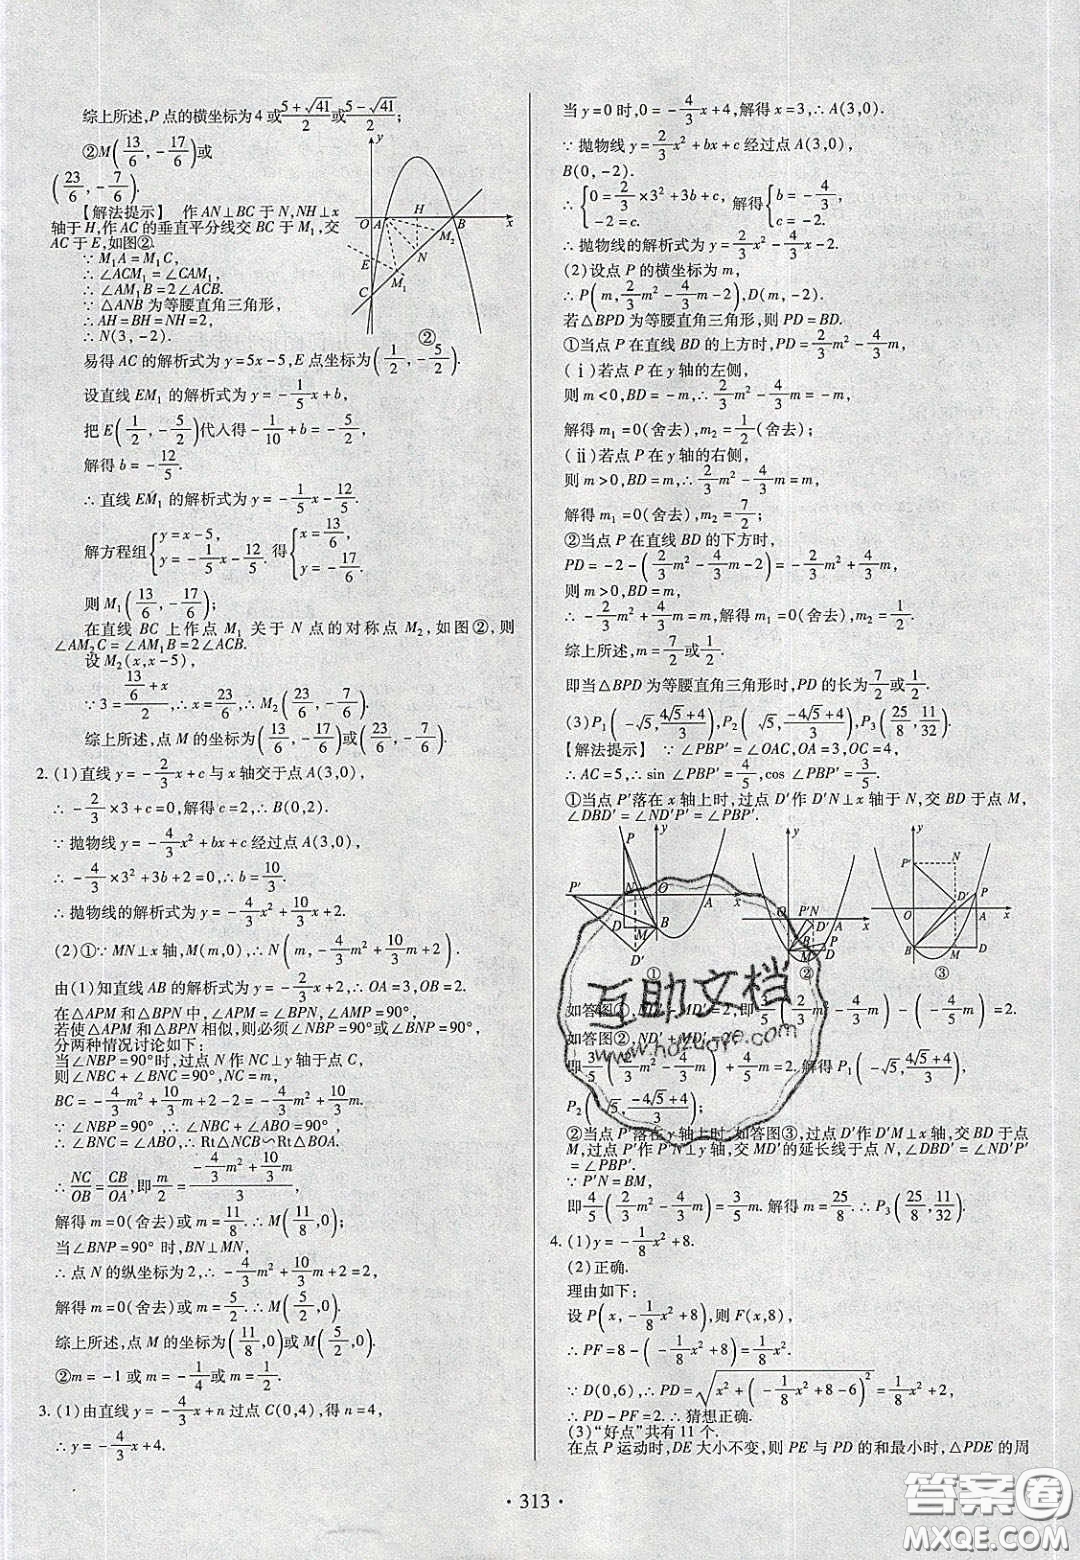 综上所述,P 点的横坐标为 4 或(5+√41)/2或(5-√41)/2;
②M(13/6,-17/6)或
(23/6,-7/6).
【解法提示】 作 AN⊥BC 于 N,NH⊥x
轴于 H,作 AC 的垂直平分线交 BC 于 M₁,交
AC 于 E,如图②.
∵M₁A=M₁C,
∴∠ACM₁=∠CAM₁,
∴∠AM₁B=2∠ACB.
∵△ANB 为等腰直角三角形,
∴AH=BH=NH=2,
∴N(3,-2).
y
O A H B x
M₂
N
E
M₁
C
②
易得 AC 的解析式为 y=5x-5,E 点坐标为(1/2,-5/2).
设直线 EM₁ 的解析式为 y=-1/5x+b,
把 E(1/2,-5/2)代入得-1/10+b=-5/2,
解得 b=-12/5.
∴直线 EM₁ 的解析式为 y=-1/5x-12/5.
解方程组{y=x-5, y=-1/5x-12/5.得{x=13/6, y=-17/6.
则 M₁(13/6,-17/6);
在直线 BC 上作点 M₁ 关于 N 点的对称点 M₂,如图②,则
∠AM₂C=∠AM₁B=2∠ACB.
设 M₂(x,x-5),
∵3=(13/6+x)/2,∴x=23/6,∴M₂(23/6,-7/6).
综上所述,点 M 的坐标为(13/6,-17/6)或(23/6,-7/6).
2. (1)直线 y=-2/3x+c 与 x 轴交于点 A(3,0),
∴-2/3×3+c=0,解得 c=2,∴B(0,2).
∵抛物线 y=-4/3x²+bx+c 经过点 A(3,0),
∴-4/3×3²+3b+2=0,∴b=10/3.
∴抛物线的解析式为 y=-4/3x²+10/3x+2.
(2)①∵MN⊥x 轴,M(m,0),∴N(m,-4/3m²+10/3m+2).
由(1)知直线 AB 的解析式为 y=-2/3x+2,∴OA=3,OB=2.
在△APM 和△BPN 中,∠APM=∠BPN,∠AMP=90°.
若使△APM 和△BPN 相似,则必须∠NBP=90°或∠BNP=90°,
分两种情况讨论如下:
当∠NBP=90°时,过点 N 作 NC⊥y 轴于点 C,
则∠NBC+∠BNC=90°,NC=m,
BC=-4/3m²+10/3m+2-2=-4/3m²+10/3m.
∵∠NBP=90°,∴∠NBC+∠ABO=90°.
∴∠BNC=∠ABO,∴Rt△NCB∽Rt△BOA.
∴NC/OB=CB/OA,即m/2=(-4/3m²+10/3m)/3,
解得 m=0(舍去)或 m=11/8.∴M(11/8,0);
当∠BNP=90°时,BN⊥MN,
∴点 N 的纵坐标为 2,∴-4/3m²+10/3m+2=2,
解得 m=0(舍去)或 m=5/2.∴M(5/2,0).
综上所述,点 M 的坐标为(11/8,0)或 M(5/2,0).
②m=-1 或 m=-1/4或 m=1/2.
3. (1)由直线 y=-4/3x+n 过点 C(0,4),得 n=4,
∴y=-4/3x+4.
当 y=0 时,0=-4/3x+4,解得 x=3,∴A(3,0).
∵抛物线 y=2/3x²+bx+c 经过点 A(3,0),
B(0,-2).
∴{0=2/3×3²+3b+c, -2=c. 解得{b=-4/3, c=-2.
∴抛物线的解析式为 y=2/3x²-4/3x-2.
(2)设点 P 的横坐标为 m,
∴P(m,2/3m²-4/3m-2),D(m,-2).
若△BPD 为等腰直角三角形,则 PD=BD.
①当点 P 在直线 BD 的上方时,PD=2/3m²-4/3m,
(ⅰ)若点 P 在 y 轴的左侧,
则 m<0,BD=-m,∴2/3m²-4/3m=-m,
解得 m₁=0(舍去),m₂=1/2(舍去);
(ⅱ)若点 P 在 y 轴的右侧,
则 m>0,BD=m,∴2/3m²-4/3m=m,
解得 m₁=0(舍去),m₂=7/2;
②当点 P 在直线 BD 的下方时,
PD=-2-(2/3m²-4/3m-2)=-2/3m²+4/3m,
则 m>0,BD=m,
∴-2/3m²+4/3m=m,解得 m₁=0(舍去),m₂=1/2.
综上所述,m=7/2或1/2.
即当△BPD 为等腰直角三角形时,PD 的长为7/2或1/2.
(3)P₁(-√5,(4√5+4)/3),P₂(√5,(-4√5+4)/3),P₃(25/8,11/32)
【解法提示】 ∵∠PBP′=∠OAC,OA=3,OC=4,
∴AC=5,∴sin ∠PBP′=4/5,cos ∠PBP′=3/5.
①当点 P′落在 x 轴上时,过点 D′作 D′N⊥x 轴于 N,交 BD 于点 M,
∠DBD′=∠ND′P′=∠PBP′.
y P P′ N O A x D M B D′ ①
y O P′N A x D′ B M P D ②
y P′ N D′ P O A x B M D ③
如答图①,ND′-MD′=2,即3/5(2/3m²-4/3m)-(-4/5m)=2.
如答图②,ND′+MD′=2,
即3/5(2/3m²-4/3m)+4/5m=2.解得 P₁(-√5,(4√5+4)/3)
P₂(√5,(-4√5+4)/3);
②当点 P′落在 y 轴上时,如答图③,过点 D′作 D′M⊥x 轴,交 BD 于点
M,过点 P′作 P′N⊥y 轴,交 MD′的延长线于点 N,∠DBD′=∠ND′P′
=∠PBP′.
∵P′N=BM,
即4/5(2/3m²-4/3m)=3/5m.解得 m=25/8.∴P₃(25/8,11/32).
4. (1)y=-1/8x²+8.
(2)正确.
理由如下:
设 P(x,-1/8x²+8),则 F(x,8),
∴PF=8-(-1/8x²+8)=1/8x².
∵D(0,6),∴PD=√(x²+(-1/8x²+8-6)²)=1/8x²+2,
∴PD-PF=2.∴猜想正确.
(3)“好点”共有 11 个.
在点 P 运动时,DE 大小不变,则 PE 与 PD 的和最小时,△PDE 的周
· 313 ·
互助文档
www.hdzuoye.com
答案圈
MXQE.COM